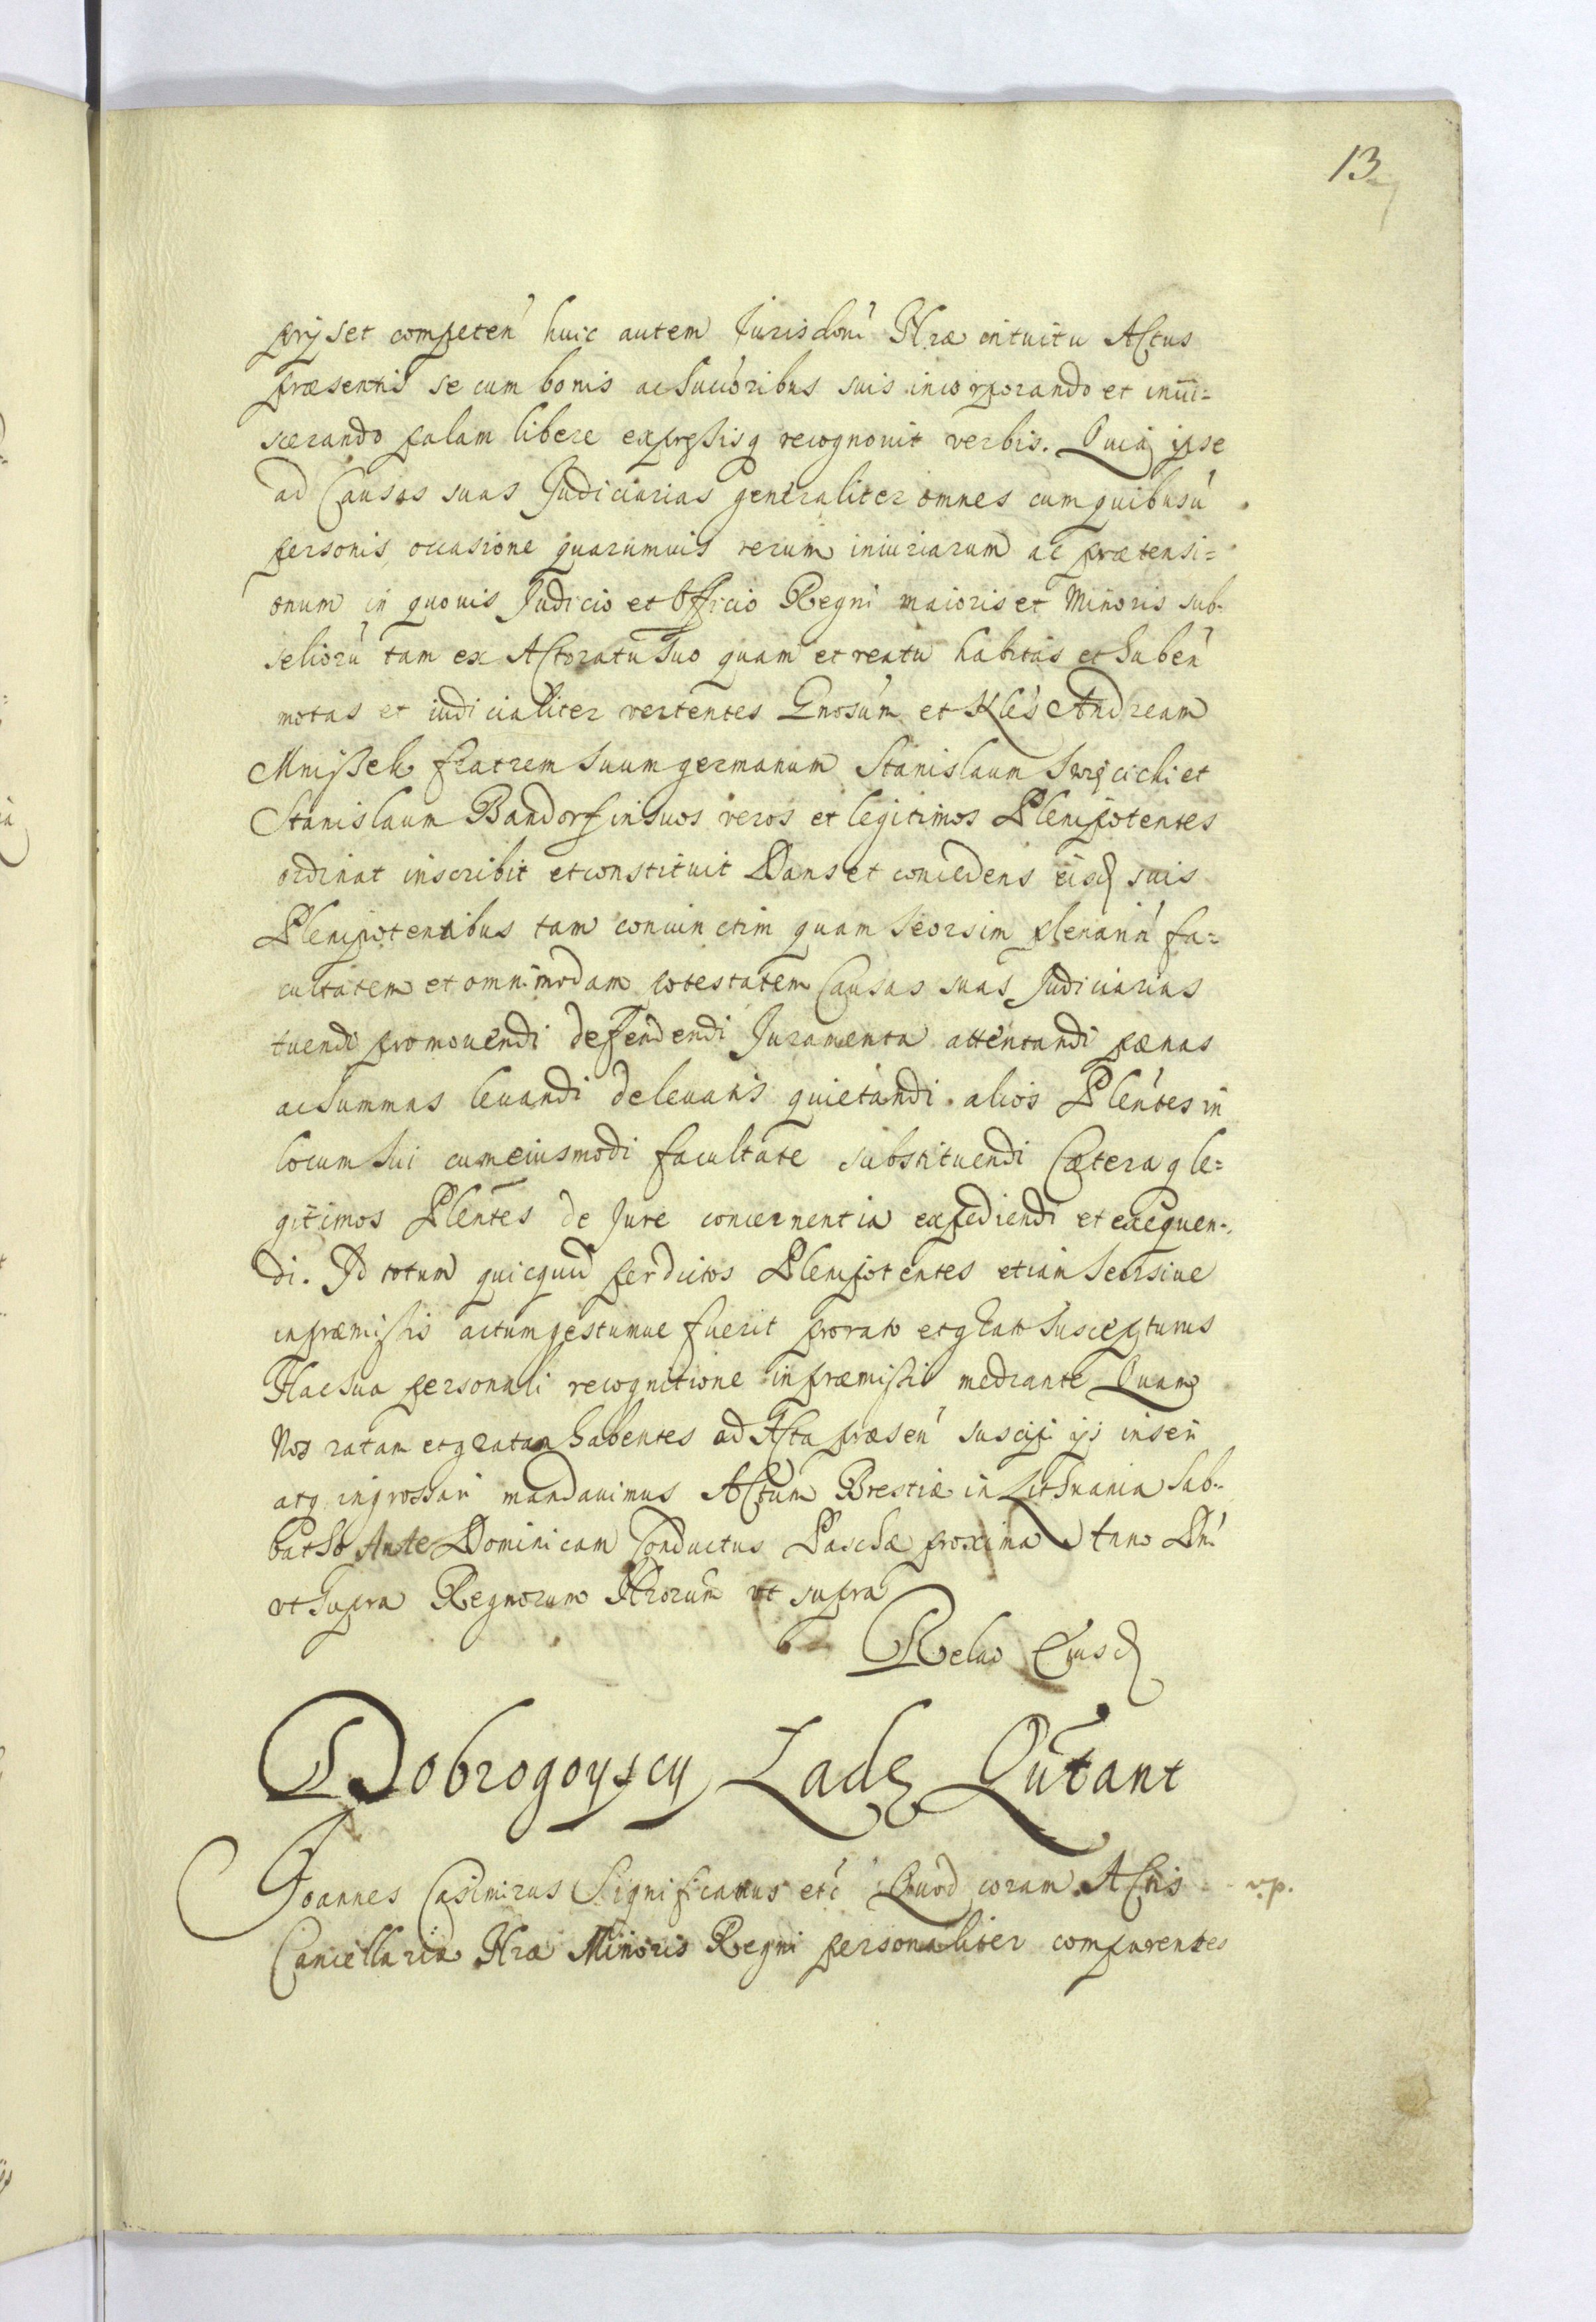 13
prijs et competen̄ huic autem Jurisdoni Nr̄æ intuitu Actus
præsentis se cum bonis ac Succoribus suis incorporando et inui=
scerando palam libere expressisq recognouit verbis. Quia ipse
ad Causas suas Judiciarias generaliter omnes cum quibusu
personis occasione quarumuis rerum iniuriarum ac prætensi=
onum in quouis Judicio et Officio Regni maioris et Minoris sub-
selioru tam ex Actoratu suo quam et reatu habitas et haben̄
motas et iudicialiter vertentes Gnosum et Nles Andream
Mniszek fratrem suum germanum Stanislaum Święcicki et
Stanislaum Bandorf in suos veros et legitimos Plenipotentes
ordinat inscribit et constituit Dans et concedens eisd suis
Plenipotentibus tam coniunctim quam seorsim plenariā fa=
cultatem et omnimodam potestatem Causas suas Judiciarias
tuendi promouendi defendendi Juramenta attentandi pænas
ac Summas leuandi de leuatis quietandi. alios Plentes in
locum sui cum eiusmodi facultate substituendi Cæteraq le=
gitimos Plentes de Jure concernentia expediendi et exequen-
di. Id totum quicquid per dictos Plenipotentes etiam Seorsiue
in præmissis actum gestumue fuerit pro rato et grato suscepturus
Hac sua personali recognitione in præmissis mediante Quam
Nos ratam et gratam habentes ad Acta præsen̄ suscipi ijs inseri
atq ingrossari mandauimus Actum Brestiæ in Lithuania Sab-
batho Ante Dominicam Conductus Paschæ proxima Anno Dni
vt supra Regnorum Nrorum vt supra
Relao Eiusd
Dobrogoyscy Lade Qutant
Joannes Casimirus Significamus etc Quod coram Actis v.p.
Cancellariæ Nræ Minoris Regni personaliter comparentes